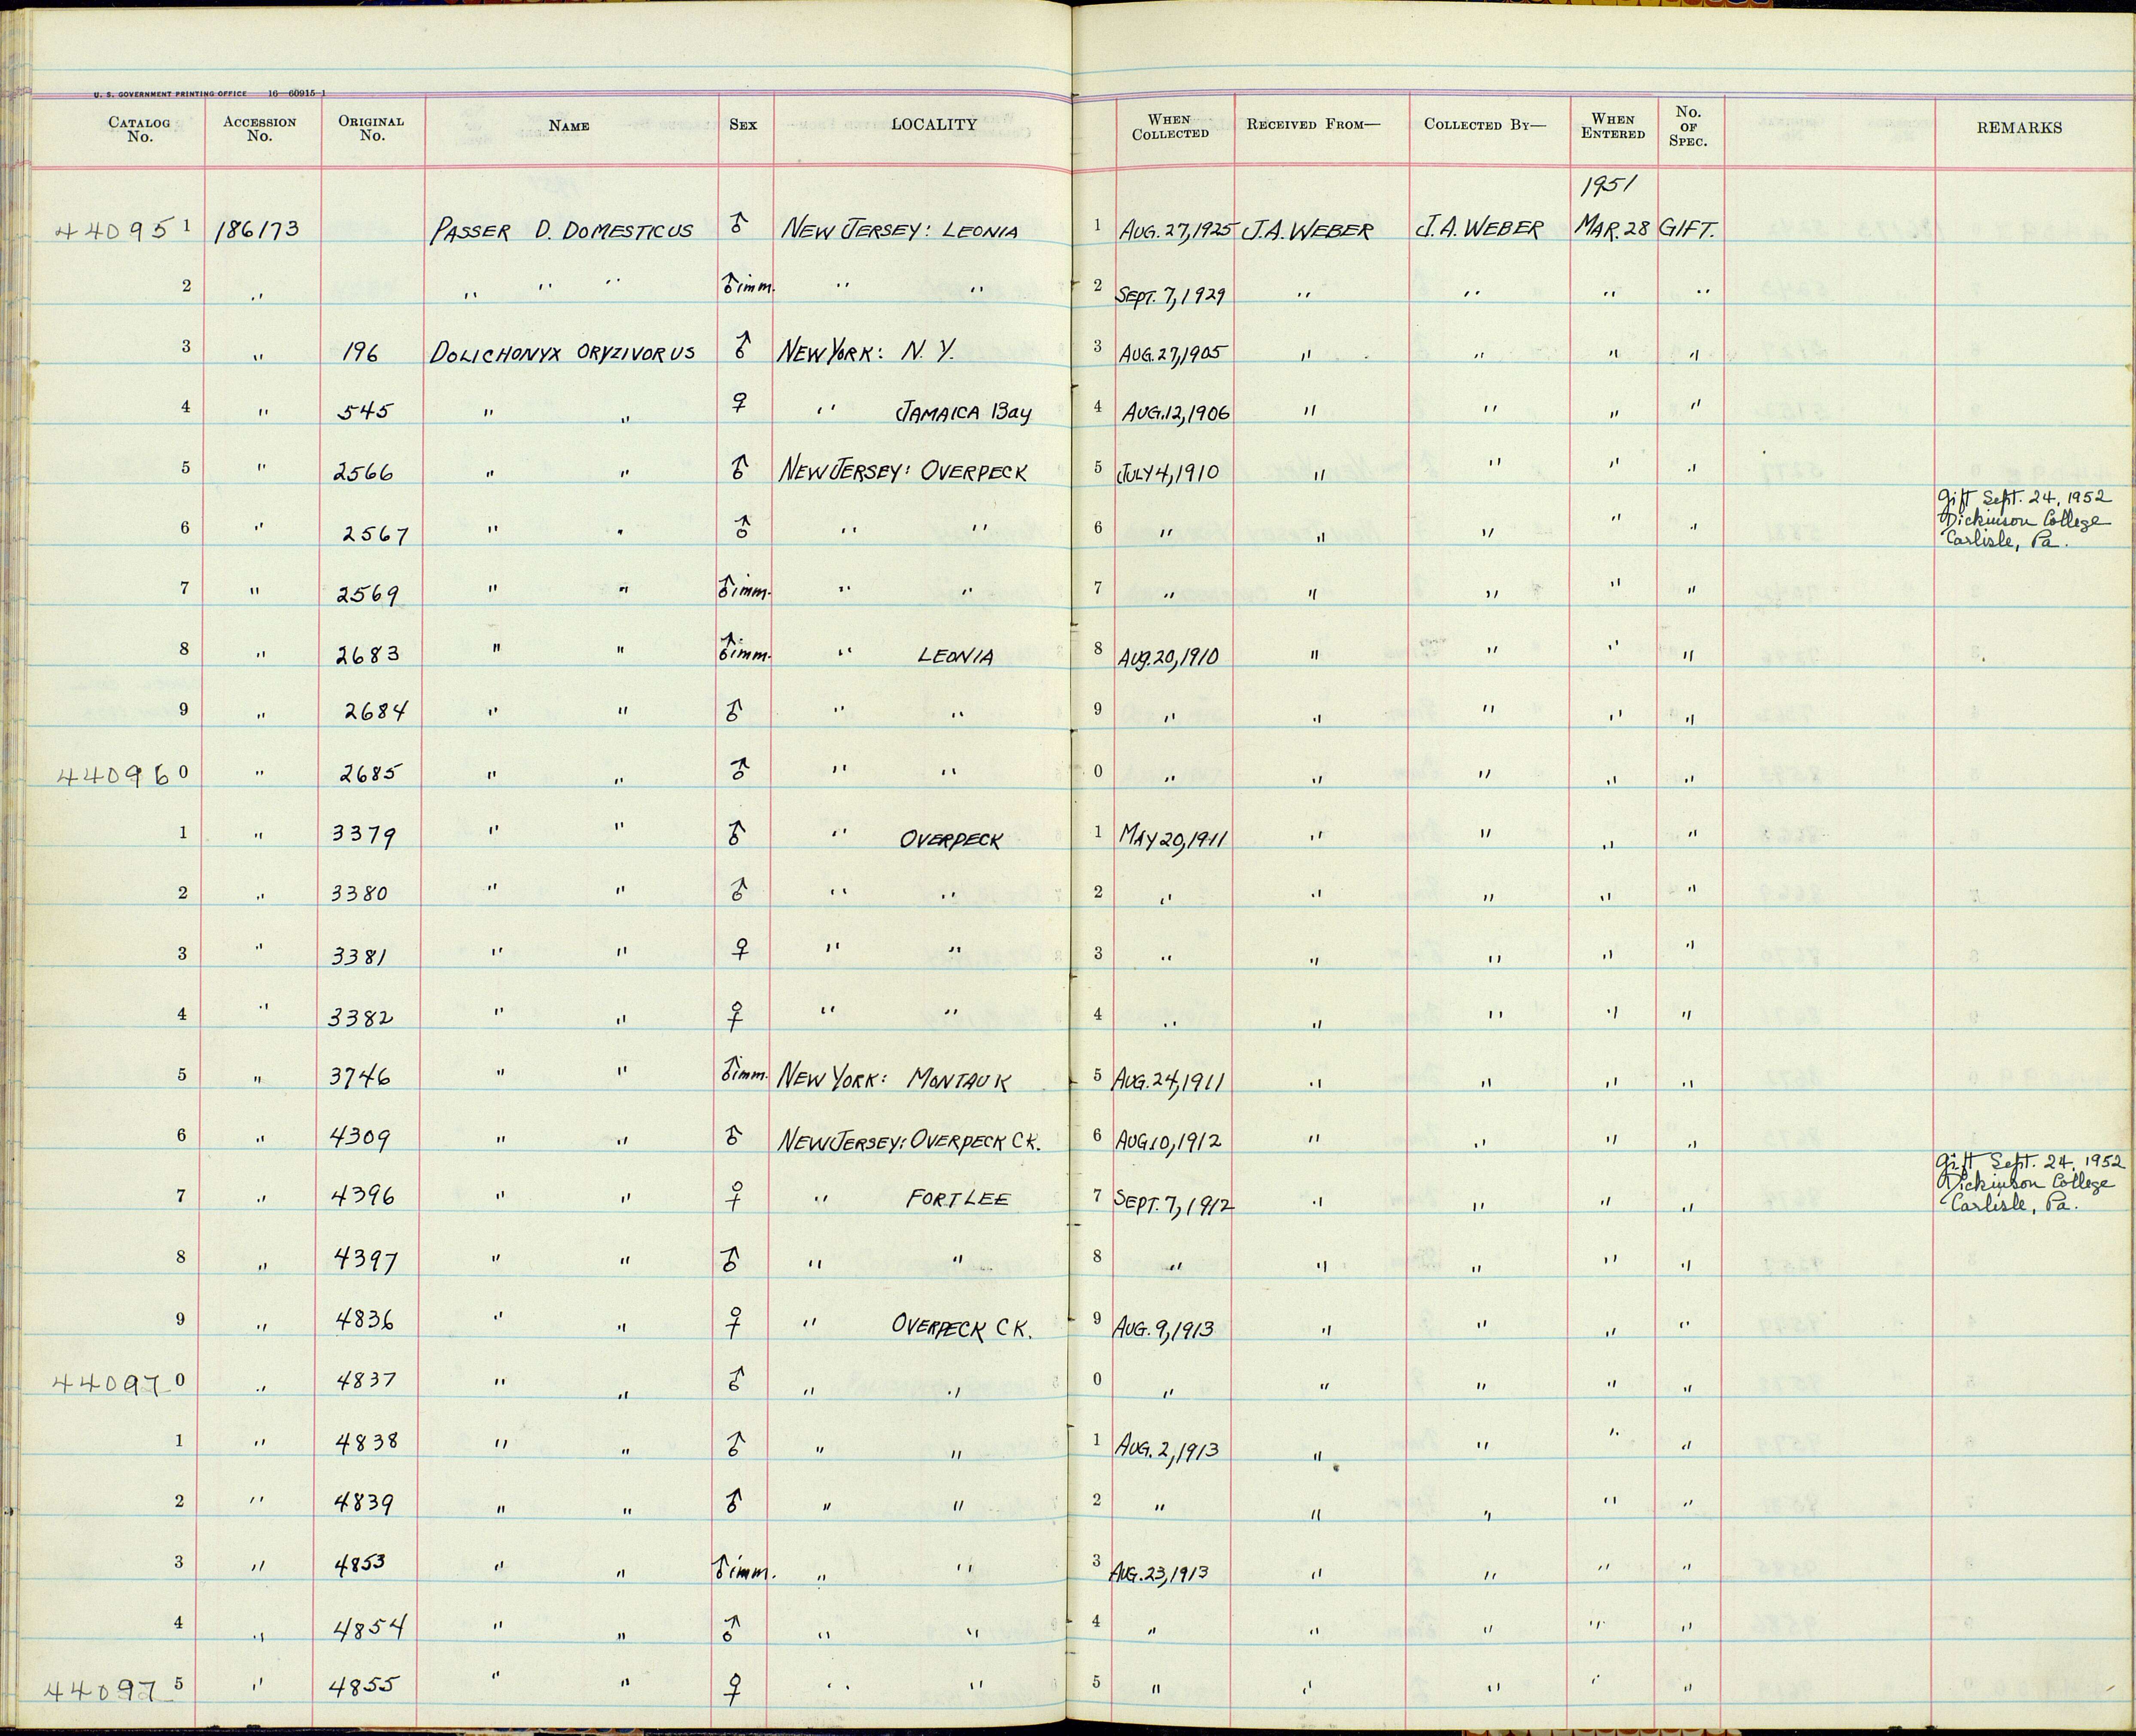 U. S. GOVERNMENT PRINTING OFFICE 16—60915-1
CATALOG No. ACCESSION No. ORIGINAL No. NAME SEX LOCALITY WHEN COLLECTED RECEIVED FROM— COLLECTED BY— WHEN ENTERED No. OF SPEC. REMARKS
1951
44095 1 186173 PASSER D. DOMESTICUS ♂ NEW JERSEY: LEONIA 1 AUG. 27, 1925 J. A. WEBER J. A. WEBER MAR. 28 GIFT.
2 " " " " ♂ imm. " " 2 SEPT. 7, 1929 " " " "
3 " 196 DOLICHONYX ORYZIVORUS ♂ NEW YORK: N. Y. 3 AUG. 27, 1905 " " " "
4 " 545 " " ♀ " JAMAICA Bay 4 AUG. 12, 1906 " " " "
5 " 2566 " " ♂ NEW JERSEY: OVERPECK 5 JULY 4, 1910 " " " "
6 " 2567 " " ♂ " " 6 " " " " " Gift Sept. 24, 1952
Dickinson College
Carlisle, Pa.
7 " 2569 " " ♂ imm. " " 7 " " " " "
8 " 2683 " " ♂ imm. " LEONIA 8 Aug. 20, 1910 " " " "
9 " 2684 " " ♂ " " 9 " " " " "
44096 0 " 2685 " " ♂ " " 0 " " " " "
1 " 3379 " " ♂ " OVERPECK 1 MAY 20, 1911 " " " "
2 " 3380 " " ♂ " " 2 " " " " "
3 " 3381 " " ♀ " " 3 " " " " "
4 " 3382 " " ♀ " " 4 " " " " "
5 " 3746 " " ♂ imm. NEW YORK: MONTAUK 5 AUG. 24, 1911 " " " "
6 " 4309 " " ♂ NEW JERSEY: OVERPECK CK. 6 AUG 10, 1912 " " " "
7 " 4396 " " ♀ " FORT LEE 7 SEPT. 7, 1912 " " " " Gift Sept. 24, 1952
Dickinson College
Carlisle, Pa.
8 " 4397 " " ♂ " " 8 " " " " "
9 " 4836 " " ♀ " OVERPECK CK. 9 AUG. 9, 1913 " " " "
44097 0 " 4837 " " ♂ " " 0 " " " " "
1 " 4838 " " ♂ " " 1 AUG. 2, 1913 " " " "
2 " 4839 " " ♂ " " 2 " " " " "
3 " 4853 " " ♂ imm. " " 3 AUG. 23, 1913 " " " "
4 " 4854 " " ♂ " " 4 " " " " "
44097 5 " 4855 " " ♀ " " 5 " " " " "